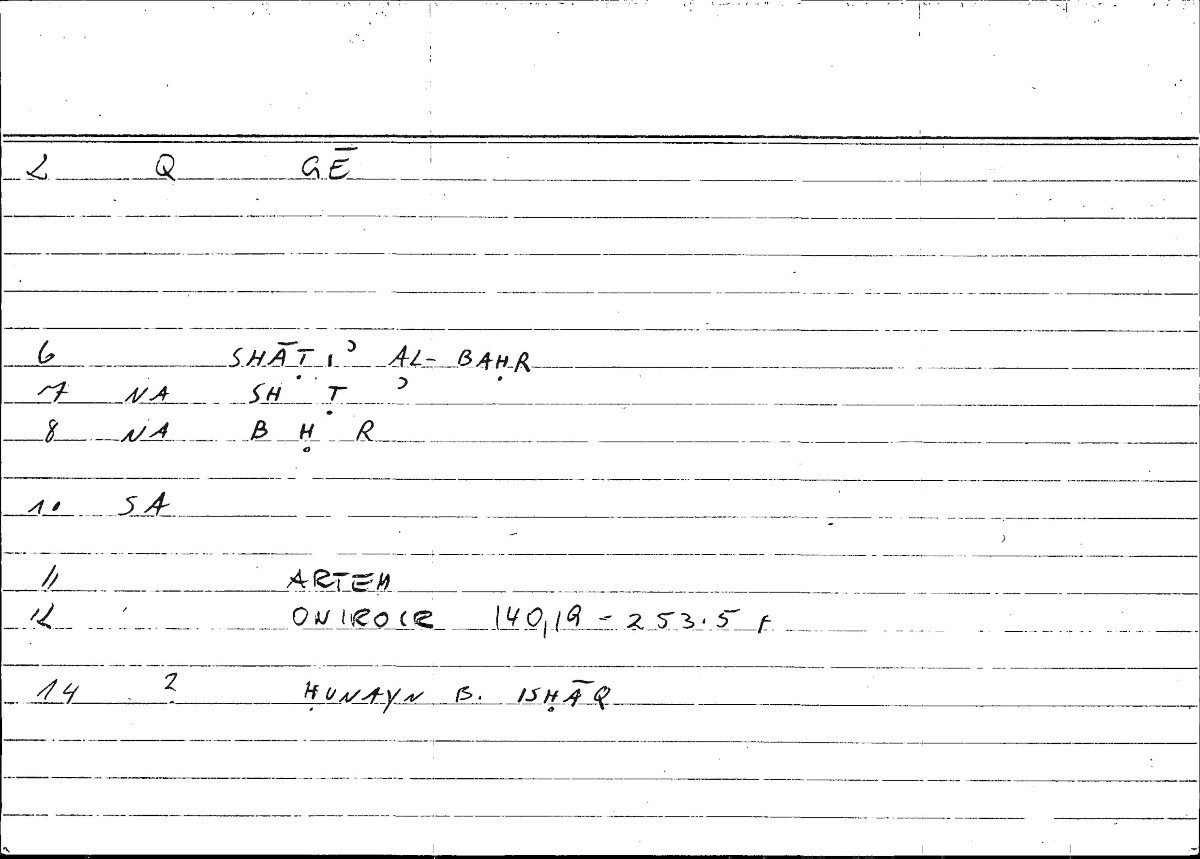 2 Q GĒ
6 SHĀṬIʾ AL-BAḤR
7 NA SH Ṭ ʾ
8 NA B Ḥ R
10 SA
11 ARTEM
12 ONIROCR 140,19 - 253.5 F
14 2 ḤUNAYN B. ISḤĀQ